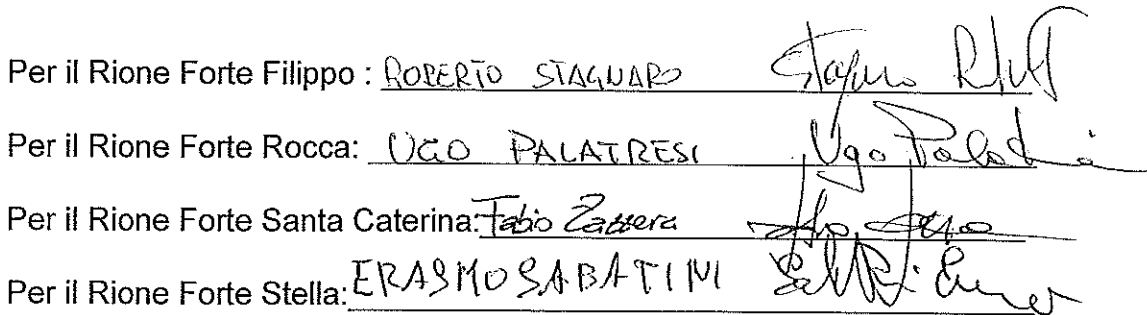 Per il Rione Forte Filippo : ROBERTO STAGNARO
Per il Rione Forte Rocca: UGO PALATRESI Ugo
Per il Rione Forte Santa Caterina: Fabio Zattera
Per il Rione Forte Stella: ERASMO SABATINI